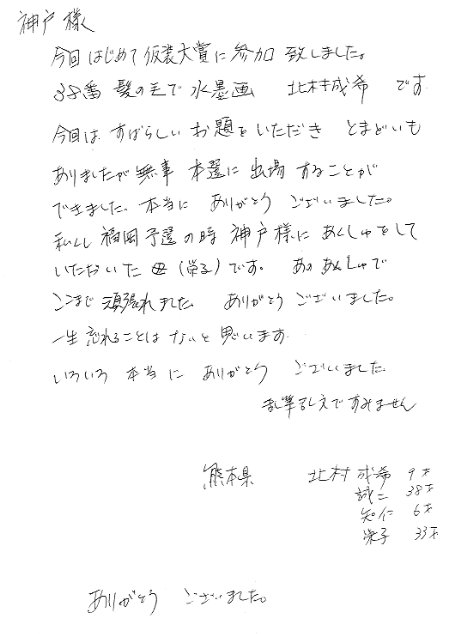 神戸様
今回はじめて仮装大賞に参加致しました。
38番 髪の毛で水墨画 北村成希 です
今回は、すばらしいお題をいただき とまどいも
ありましたが無事 本選に出場することが
できました。本当に ありがとう ございました。
私し 福岡予選の時 神戸様にあくしゅをして
いただいた母(栄子)です。 あのあくしゅで
ここまで頑張れました ありがとうございました。
一生忘れることはないと思います
いろいろ 本当に ありがとう ございました
乱筆乱文ですみません
熊本県 北村 成希 9才
誠二 38才
知仁 6才
栄子 33才
ありがとう ございました。